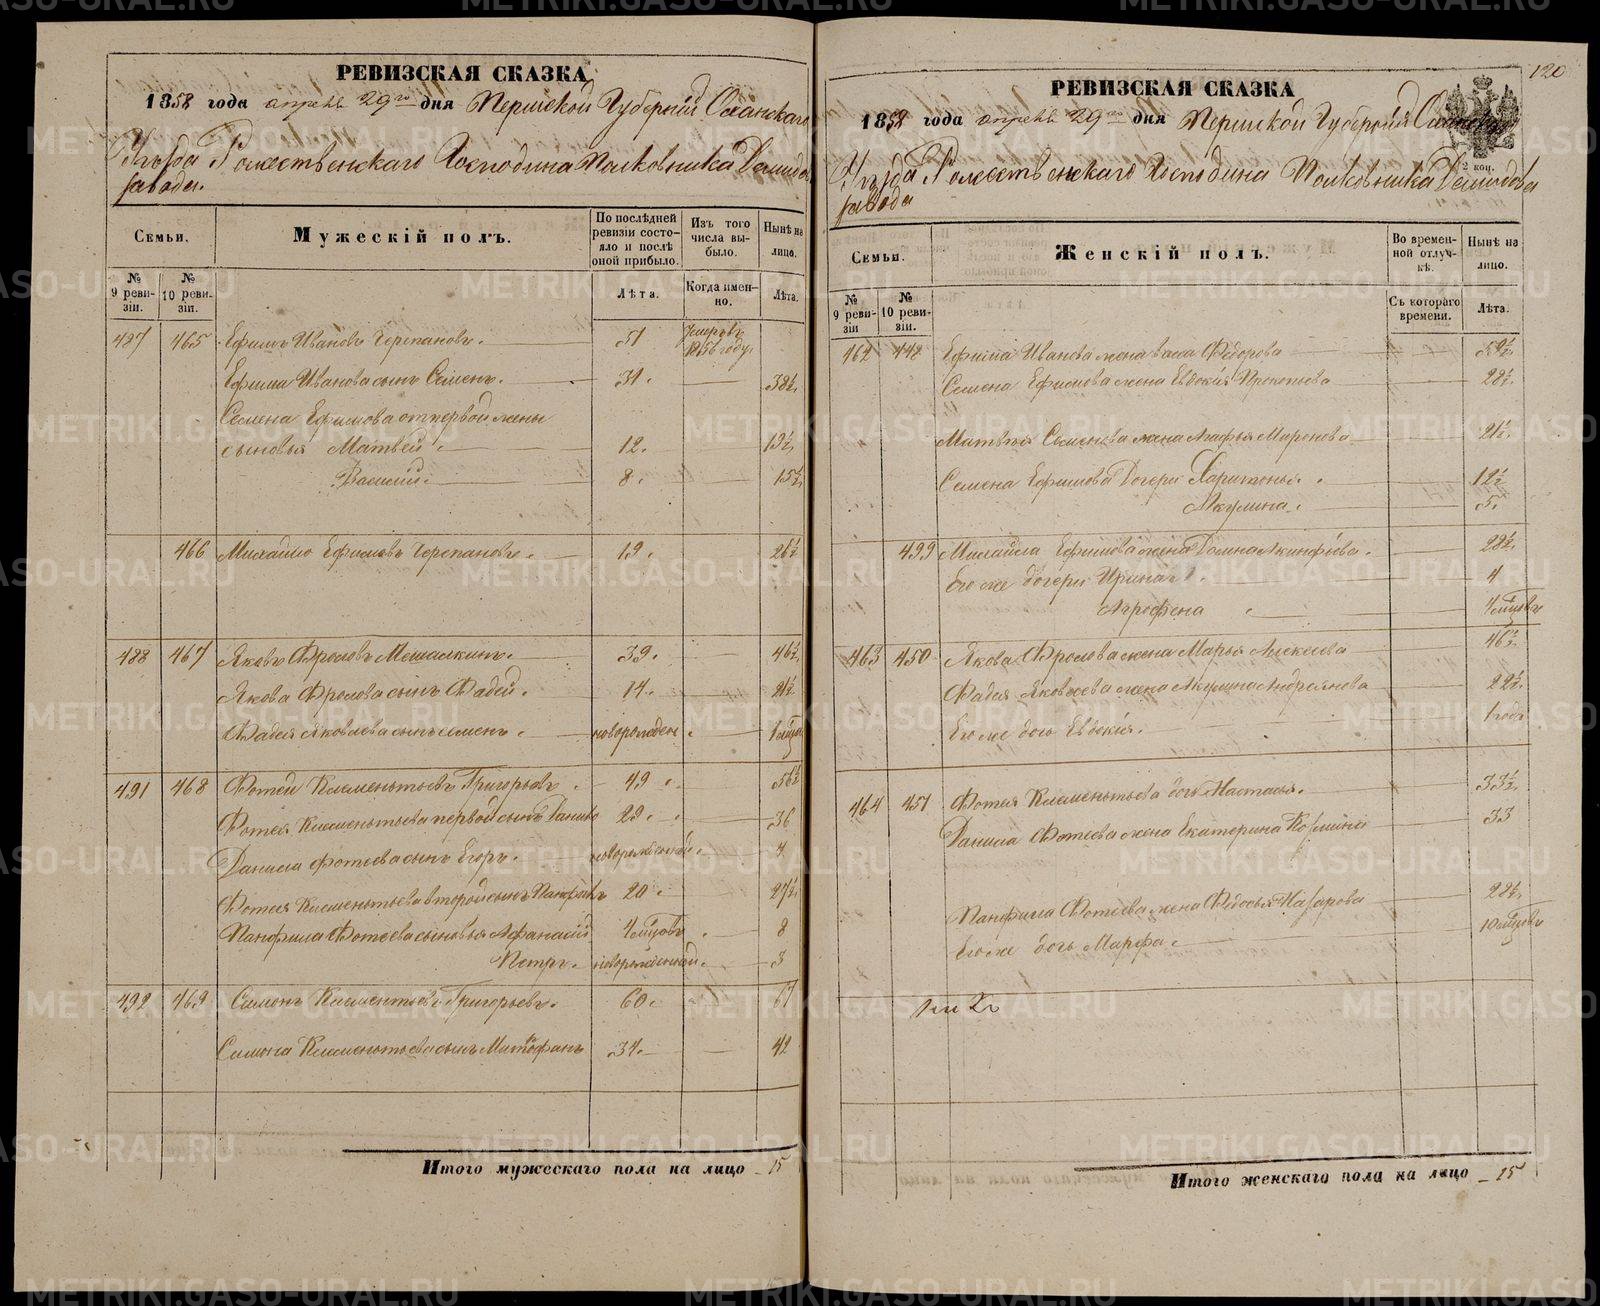 РЕВИЗСКАЯ СКАЗКА
1858 года апреля 29го дня Пермской Губернiй Оханскаго
Уезда Рожественскаго Господина Полковника Демидова
завода.
Семьи. Мужескiй полъ. По послѣдней ревизiи состояло и послѣ оной прибыло. Изъ того числа выбыло. Нынѣ на лицо.
№ 9 ревизiи. № 10 ревизiи. Лѣта. Когда именно. Лѣта.
487 465 Ефимъ Ивановъ Черепановъ. 51 Умеръ въ 1856 году.
Ефима Иванова сынъ Семенъ. 31. 38½
Семена Ефимова отпервой жены
сыновья Матвей 12. 19½
Василий. 8. 15½
466 Михайло Ефимовъ Черепановъ. 19. 26½
488 467 Яковъ Фроловъ Мешалкинъ. 39. 46½
Якова Фролова сынъ Фадей. 14. 21½
Фадея Яковлева сынъ новорожден.
491 468 Фотей Клементьевъ Григорьевъ. 49. 56½
Фотея Клементьева первой сынъ Данило 29. 36
Данила Фотеева сынъ Егоръ. новорожденный. 4
Фотея Клементьева второй сынъ Панфилъ 20. 27½
Панфила Фотеева сыновья Афанасiй 8
Петръ. новорожденный. 3
492 469 Симонъ Клементьевъ Григорьевъ. 60. 67
Симона Клементьева сынъ Митрофанъ 34. 42
Итого мужескаго пола на лицо 15
120
РЕВИЗСКАЯ СКАЗКА
1858 года апреля 29го дня Пермской Губернiй
Уезда Рожественскаго Господина Полковника Демидова
завода
2 коп.
Семьи. Женскiй полъ. Во временной отлучкѣ. Нынѣ на лицо.
№ 9 ревизiи № 10 ревизiи. Съ котораго времени. Лѣта.
462 448 Ефима Иванова жена Федорова
Семена Ефимова жена Евдокiя Прокопьева 28½
Матвея Семенова жена Агафья Миронова 21½
Семена Ефимова Дочери Харитонья. 12½
Акулина. 5.
499 Михайла Ефимова жена Домна Акинфiева. 28½
Его же дочери Ирина 4
Агрофена
463 450 Якова Фролова жена Марья Алексиева 46½
Фадея Яковлева жена Акулина Андреянова 22½
Его же дочь Евдокiя. 1 года
464 451 Фотея Клементьева дочь Настасья. 33½
Данила Фотеева жена Екатерина Козмина 33
Панфила Фотеева жена Федосья Назарова 28½
Его же дочь Марфа.
Итого женскаго пола на лицо 15